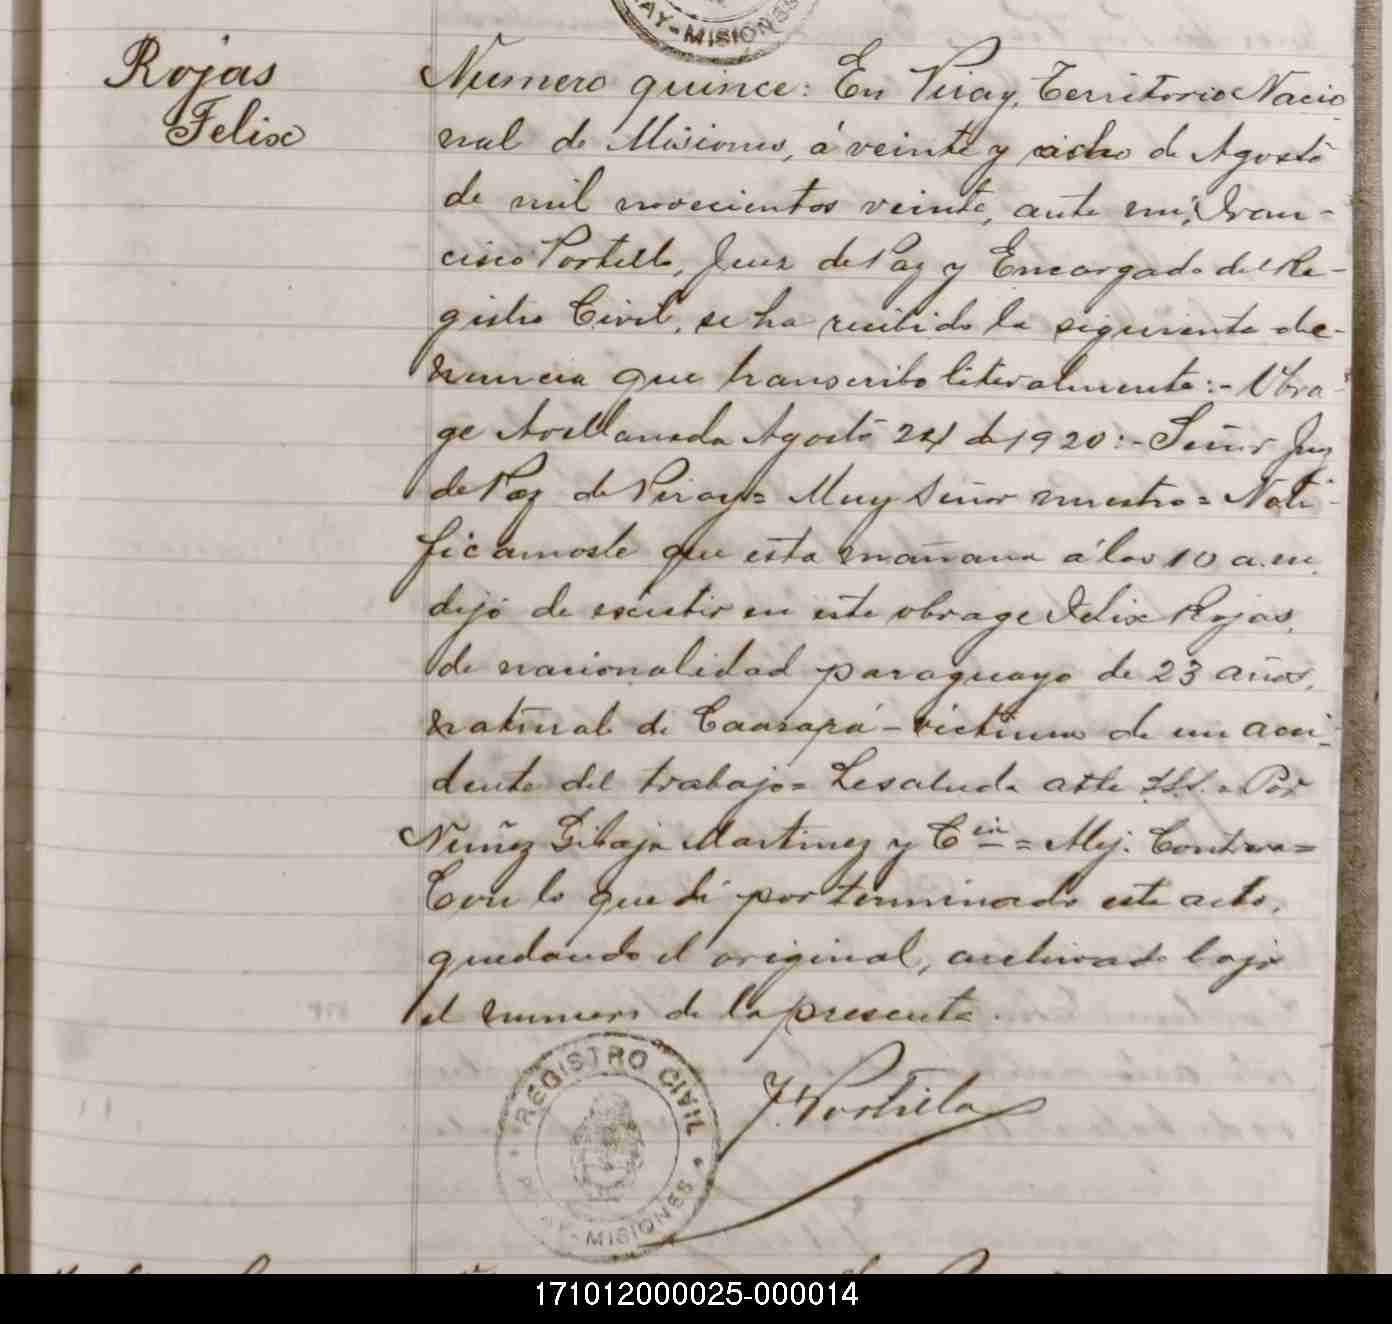 AY-MISIONES
Rojas
Felix
Numero quince: En Piray, Territorio Nacio
nal de Misiones, á veinte y ocho de Agosto
de mil novecientos veinte, ante mi, Fran-
cisco Portillo, Juez de Paz y Encargado del Re-
gistro Civil, se ha recibido la siguiente de-
nuncia que transcribo literalmente:- Obra-
ge Avellaneda Agosto 24 de 1920:- Señor Juez
de Paz de Piray= Muy Señor nuestro= Noti-
ficamosle que esta mañana á las 10 a.m.
dejó de existir en este obrage Felix Rojas,
de nacionalidad paraguayo de 23 años,
natural de Caazapá - victima de un acci-
dente del trabajo= Le saluda atte S.S.S.= Por
Nuñez Gibaja Martinez y Cia= Mej. Contrera=
Con lo que dí por terminado este acto,
quedando el original, archivado bajo
el numero de la presente.
F. Portillo
REGISTRO CIVIL
PIRAY-MISIONES
171012000025-000014